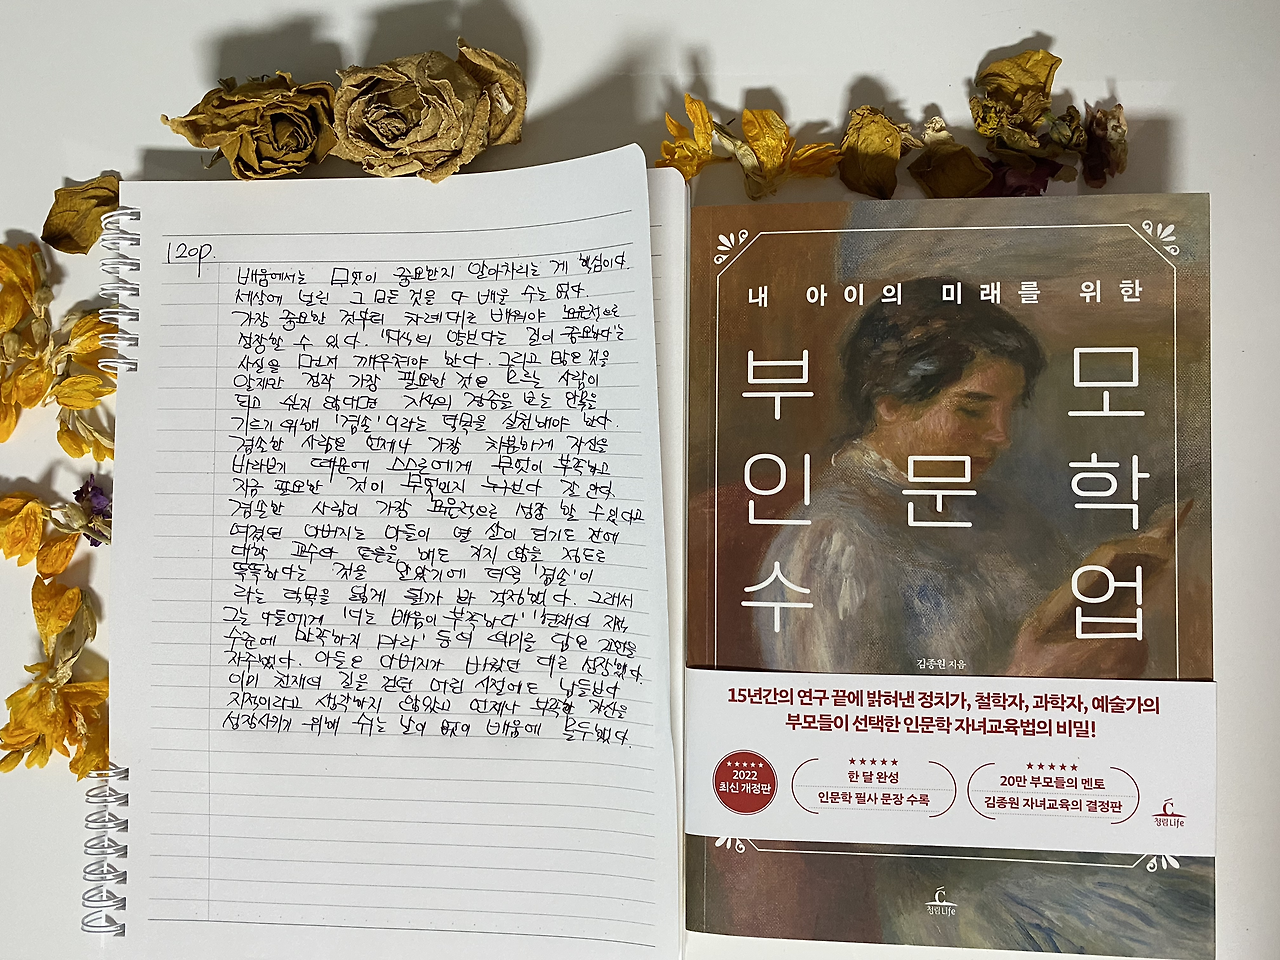 120p.
배움에서는 무엇이 중요한지 알아차리는 게 핵심이다.
세상에 널린 그 모든 것을 다 배울 수는 없다.
가장 중요한 것부터 차례대로 배워야 효율적으로
성장할 수 있다. '지식의 양보다는 질이 중요하다'는
사실을 먼저 깨우쳐야 한다. 그리고 많은 것을
알지만 정작 가장 필요한 것은 모를 사람이
되고 싶지 않다면 지식의 경중을 보는 안목을
기르기 위해 '겸손'이라는 덕목을 실천해야 한다.
겸손한 사람은 언제나 가장 차분하게 자신을
바라보기 때문에 스스로에게 무엇이 부족하고
지금 필요한 것이 무엇인지 누구보다 잘 안다.
겸손한 사람이 가장 효율적으로 성장 할 수 있다고
여겼던 아버지는 아들이 열 살이 되기도 전에
대학 교수와 토론을 해도 지지 않을 정도로
똑똑하다는 것을 알았기에 더욱 '겸손'이
라는 덕목을 잃게 될까 봐 걱정했다. 그래서
그는 아들에게 '너는 배움이 부족하다' '현재의 지적
수준에 만족하지 마라' 등의 의미를 담은 조언을
자주했다. 아들은 아버지가 바랐던 대로 성장했다.
이미 천재의 길을 걷던 어린 시절에도 남들보다
지적이라고 생각하지 않았고 언제나 부족한 자신을
성장시키기 위해 쉬는 날이 없이 배움에 몰두했다.
내 아이의 미래를 위한
부모
인문학
수업
김종원 지음
15년간의 연구 끝에 밝혀낸 정치가, 철학자, 과학자, 예술가의
부모들이 선택한 인문학 자녀교육법의 비밀!
2022
최신 개정판
한 달 완성
인문학 필사 문장 수록
20만 부모들의 멘토
김종원 자녀교육의 결정판
청림Life
청림Life